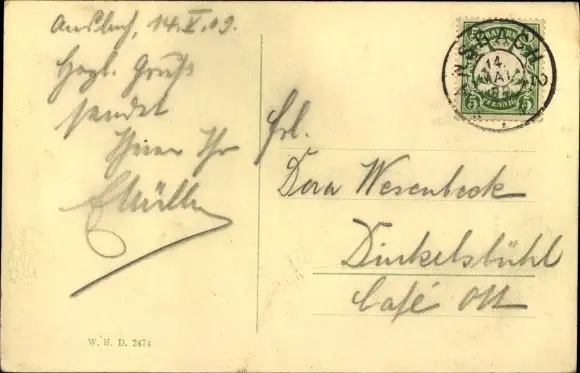 Ansbach, 14. V. 09.
Herzl. Gruß
sendet
Ihr
EMüller
Frl.
Dora Wesenbeck
Dinkelsbühl
Café Ott
BAYERN
5 PFENNIG 5
ANSBACH 2
14.
MAI
W. H. D. 2474